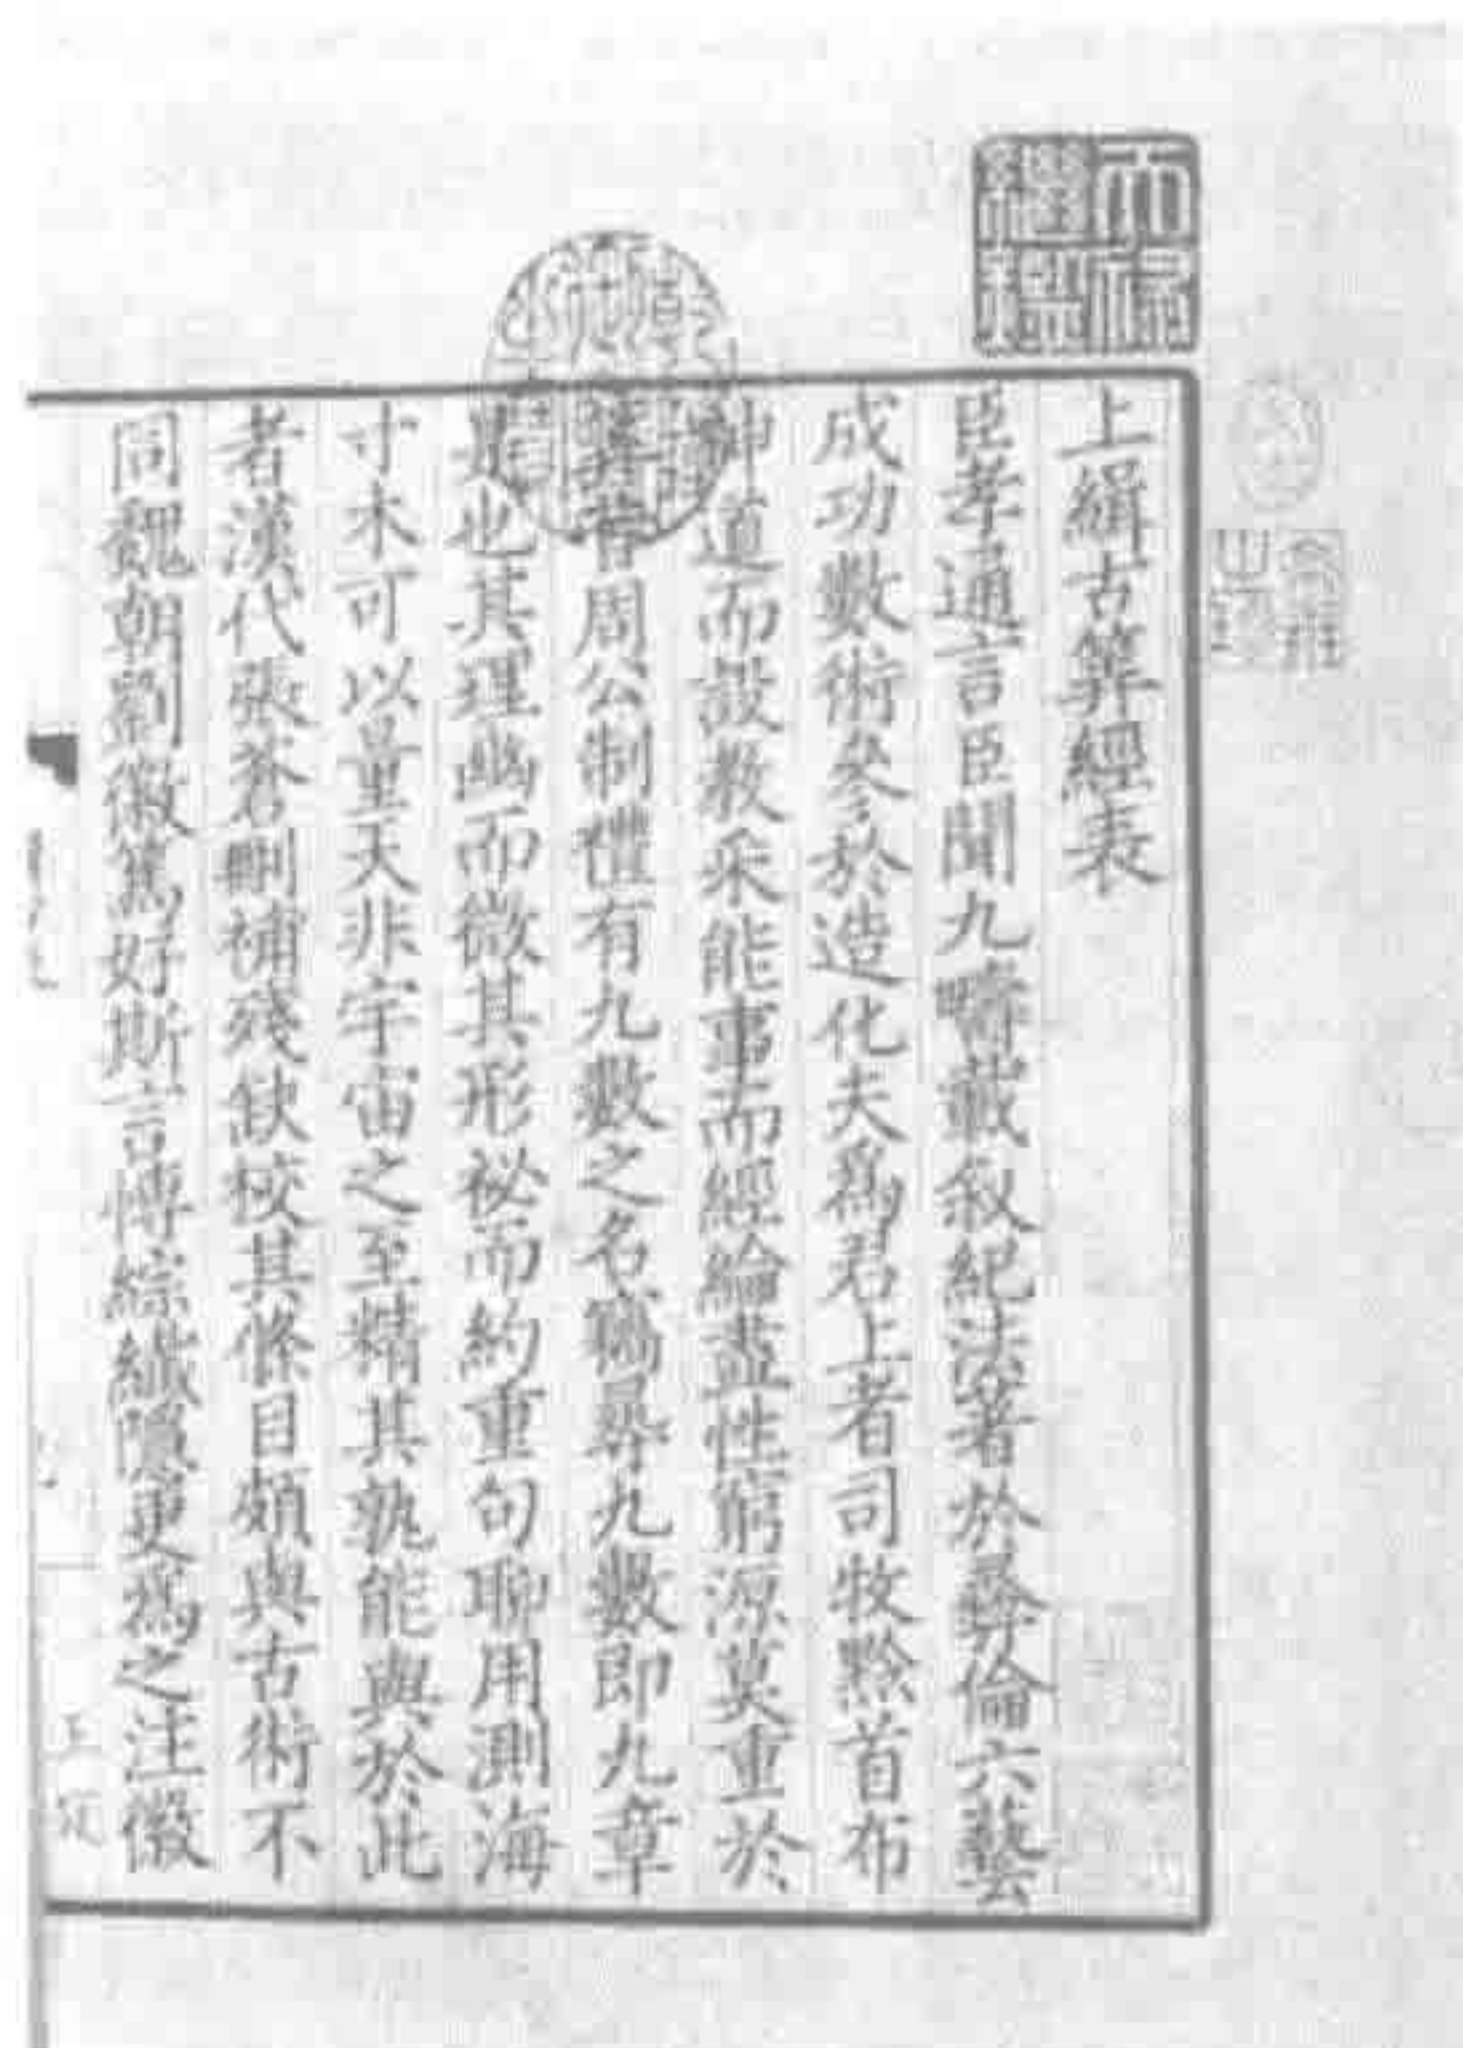 上緝古筭經表
臣孝通言臣聞九疇載敘紀法著於彝倫六藝
成功數術參於造化夫為君上者司牧黔首布
神道而設教采能事而經綸盡性窮源莫重於
筭昔周公制禮有九數之名竊尋九數即九章
是也其理幽而微其形祕而約重句聊用測海
寸木可以量天非宇宙之至精其孰能與於此
者漢代張蒼刪補殘缺校其條目頗與古術不
同魏朝劉徽篤好斯言博綜纖隱更為之注徽